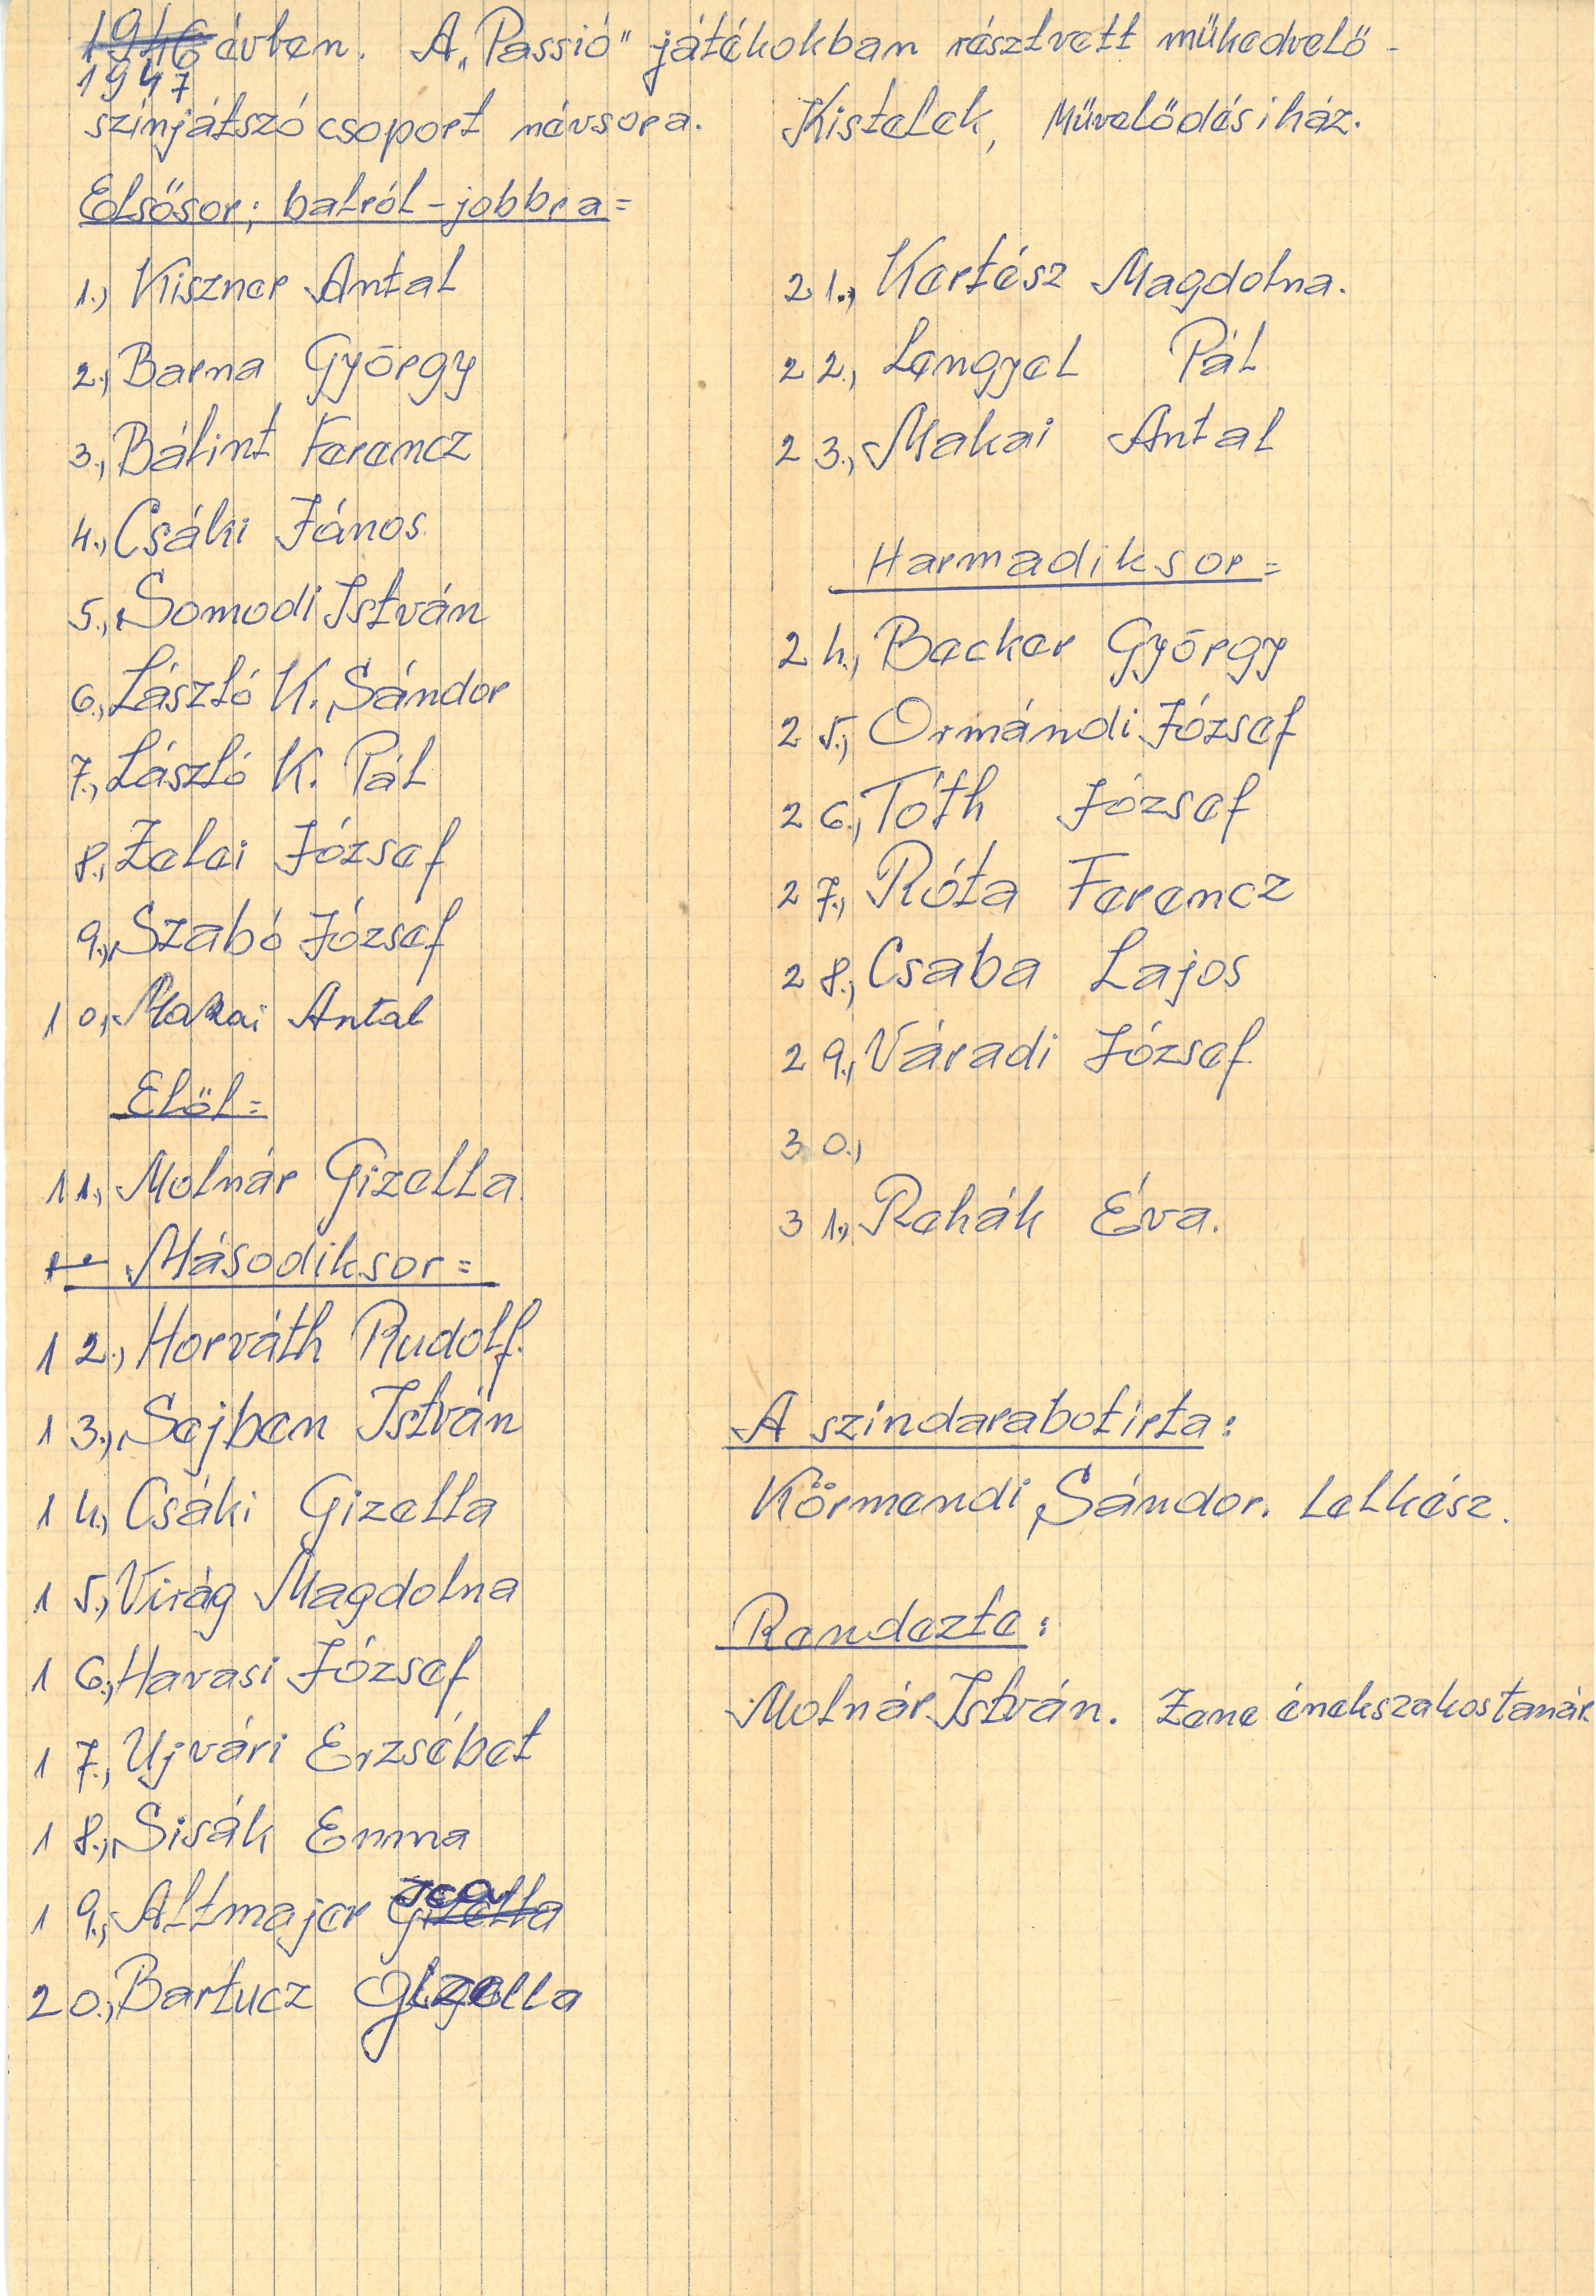 1946 évben. A „Passió” játékokban résztvett műkedvelő -
1947
színjátszó csoport névsora. Kistelek, Művelődésiház.
Elsősor; balról - jobbra =
1., Kiszner Antal
2., Barna György
3., Bálint Ferencz
4., Csáki János.
5., Somodi István
6., László K. Sándor
7., László K. Pál
8., Zelei József
9., Szabó József
10., Makai Antal
Elöl =
11., Molnár Gizella.
Másodiksor =
12., Horváth Rudolf.
13., Sejben István
14., Csáki Gizella
15., Virág Magdolna
16., Havasi József
17., Ujvári Erzsébet
18., Sisák Emma
19., Altmajer Gizella Ica
20., Bartucz Gizella
21., Kertész Magdolna.
22., Lengyel Pál
23., Makai Antal
Harmadiksor =
24., Becker György
25., Ormándi József
26., Tóth József
27., Róta Ferencz
28., Csaba Lajos
29., Váradi József.
30.,
31., Rehák Éva.
A szindarabotirta:
Körmendi Sándor. Lelkész.
Rendezte:
Molnár István. Zene énekszakostanár